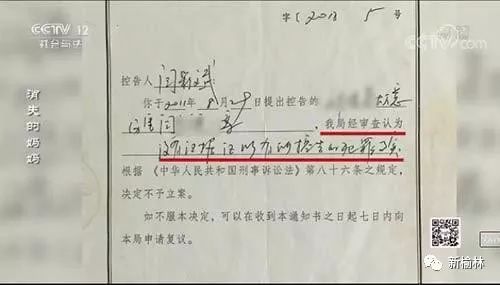 CCTV 12
社会与法
CCTV.com
字〔2011 5 号
消失的妈妈
控告人 闫
你于2011年8月29日提出控告的
闫 ，我局经审查认为
没有证据证明有所控告的犯罪事实
根据《中华人民共和国刑事诉讼法》第八十六条之规定，
决定不予立案。
如不服本决定，可以在收到本通知书之日起七日内向
本局申请复议。
新榆林